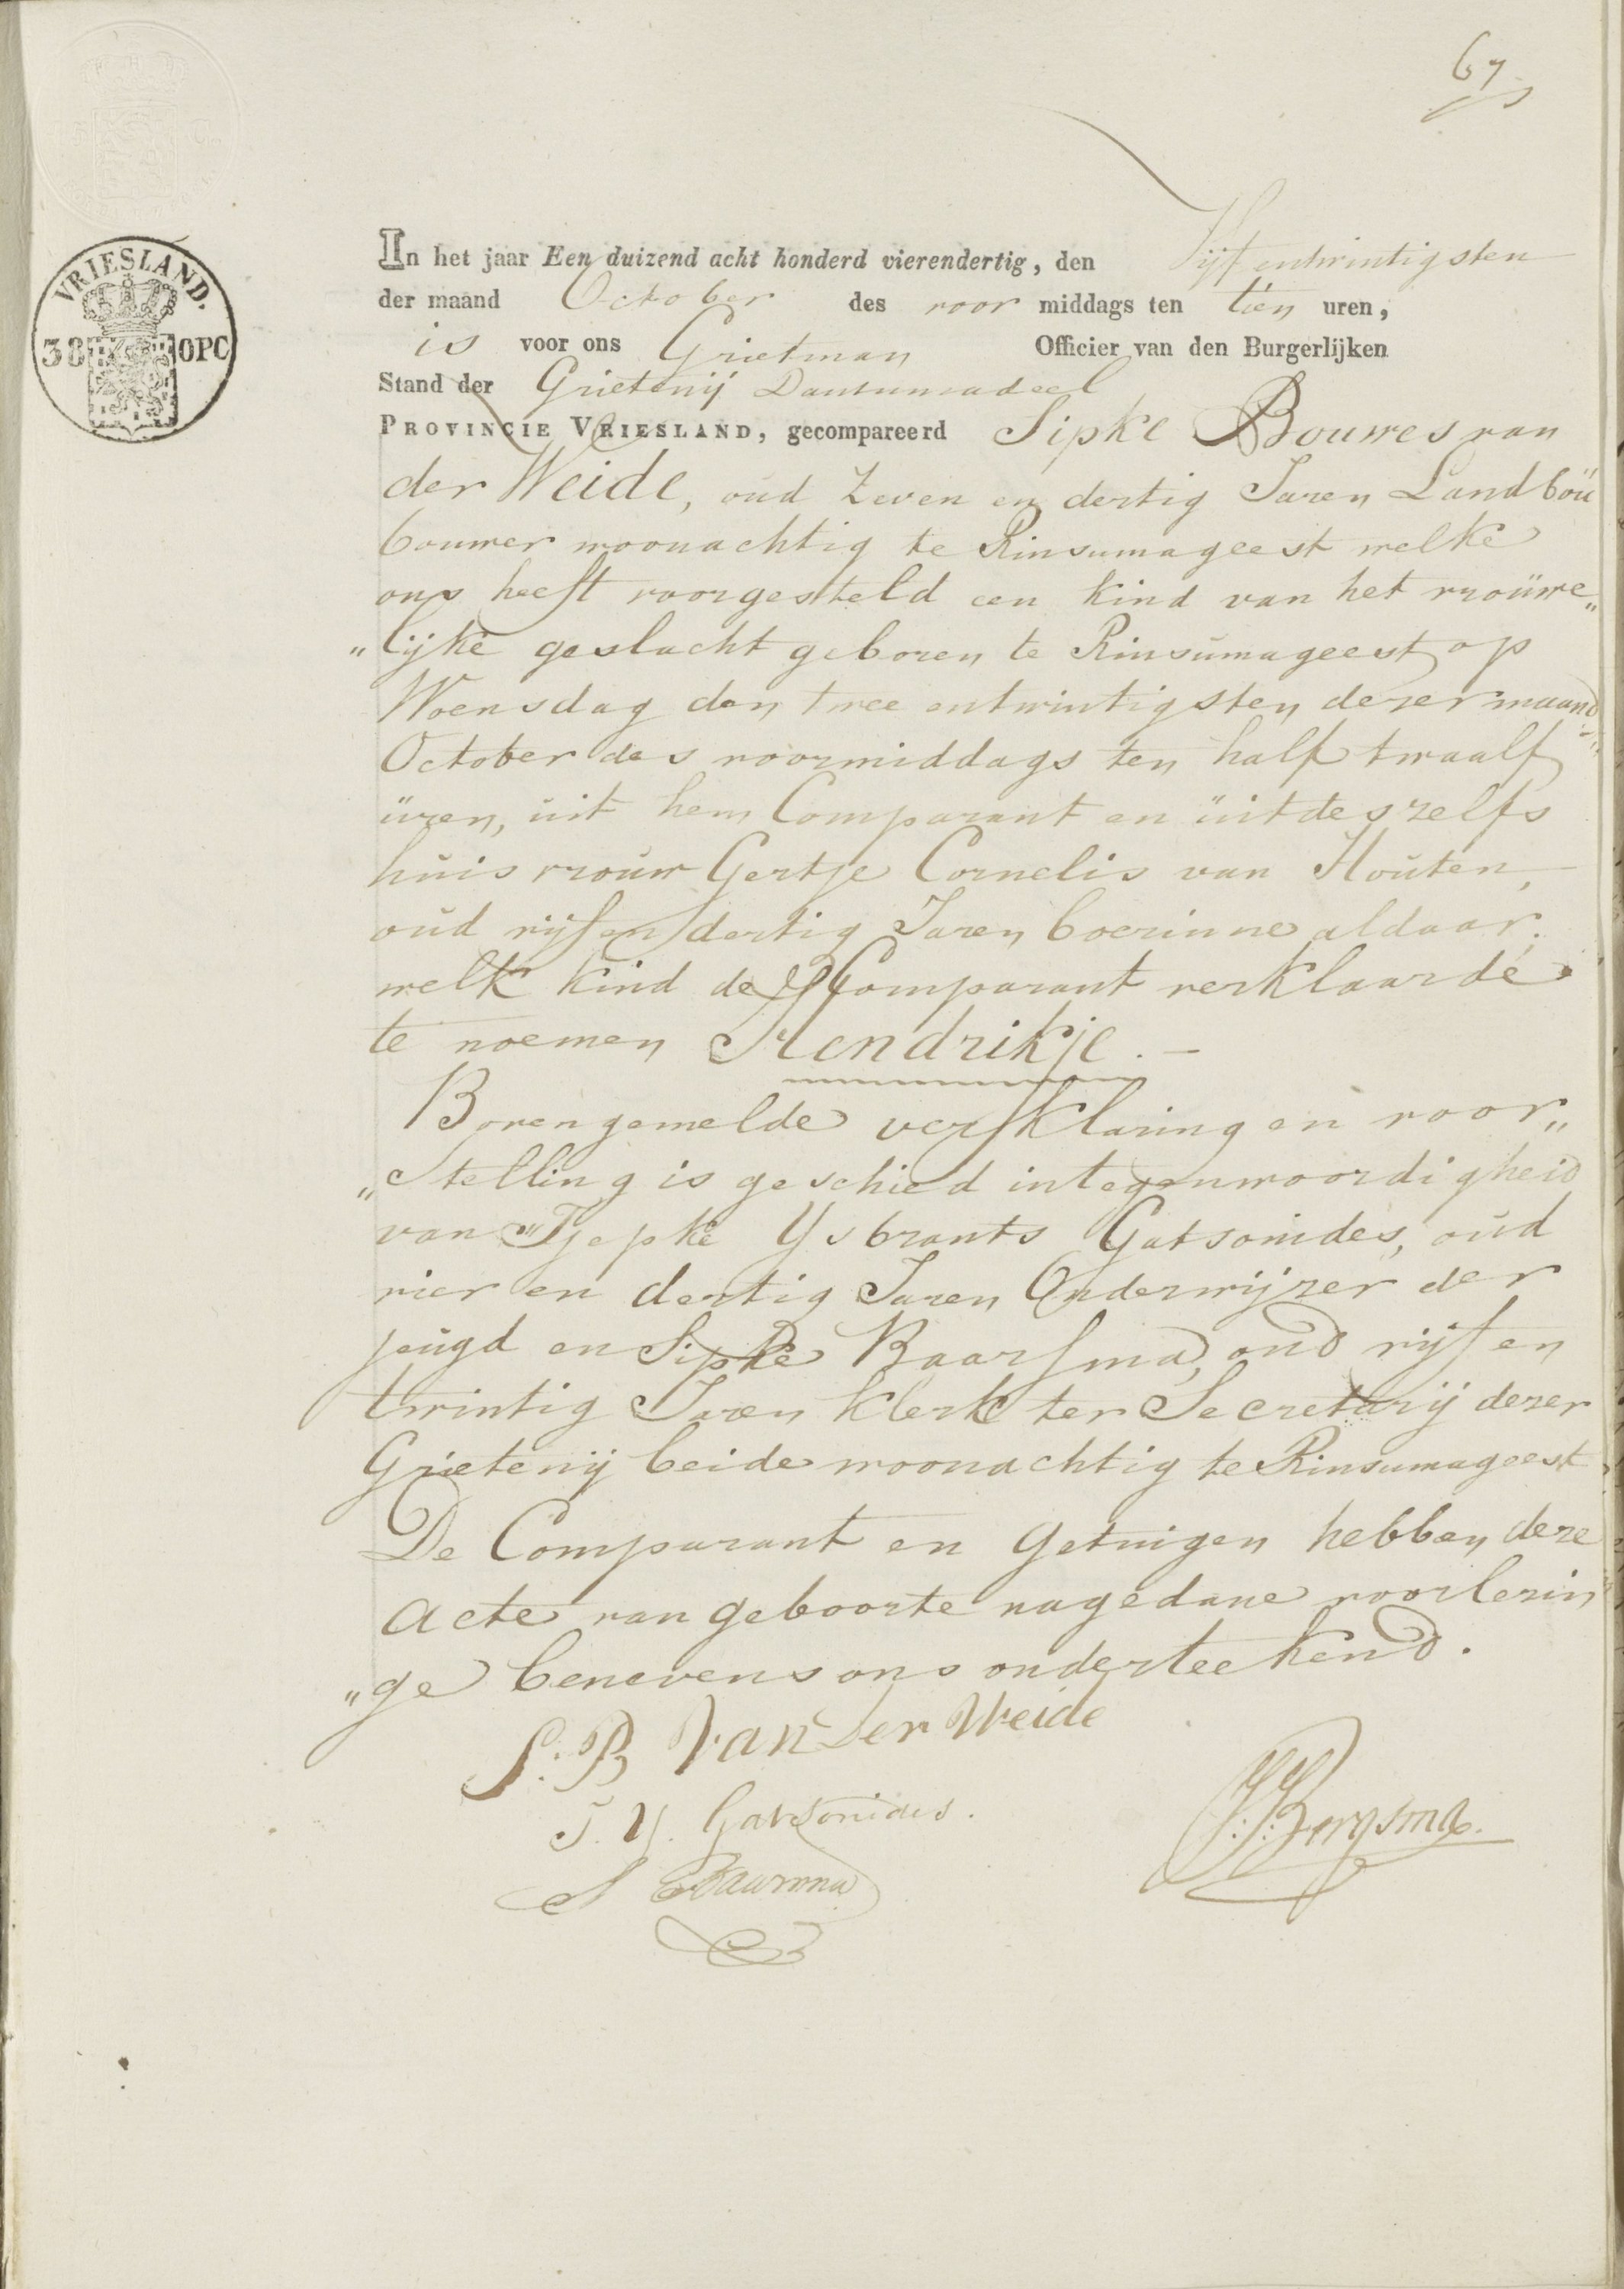 67
VRIESLAND.
38 OPC
In het jaar Een duizend acht honderd vierendertig, den Vijfentwintigsten
der maand October des voor middags ten tien uren,
is voor ons Grietman Officier van den Burgerlijken
Stand der Grietenij Dantumadeel
PROVINCIE VRIESLAND, gecompareerd Sipke Bouwes van
der Weide, oud Zeven en dertig Jaren Landbou
bouwer woonachtig te Rinsumageest welke
ons heeft voorgesteld een kind van het vrouwe„
„lijke geslacht geboren te Rinsumageest op
Woensdag den twee entwintigsten dezer maand
October des voormiddags ten half twaalf
uren, uit hem Comparant en uit deszelfs
huisvrouw Gertje Cornelis van Houten,
oud vijf en dertig Jaren boerinne aldaar,
welk kind de Comparant verklaarde
te noemen Hendrikje.—
Bovengemelde verklaring en voor„
„stelling is geschied in tegenwoordigheid
van Tjepke Ysbrants Gatsonides, oud
vier en dertig Jaren Onderwijzer der
jeugd en Sipke Baarsma, oud vijf en
twintig Jaren klerk ter Secretarij dezer
Grietenij beide woonachtig te Rinsumageest
De Comparant en Getuigen hebben deze
Acte van geboorte nagedane voorlezin
„ge benevens ons onderteekend.
S: B Van der Weide
T. Y. Gatsonides.
S Baarsma
Bergsma.